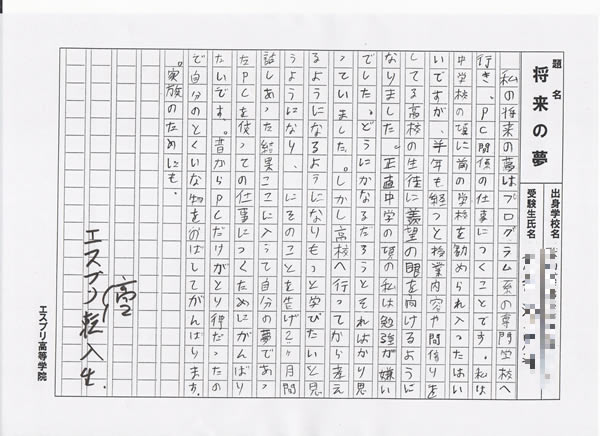 題名
将来の夢
出身学校名
受験生氏名
私の将来の夢はプログラム系の専門学校へ
行き、PC関係の仕事につくことです。私は
中学校の頃に前の学校を勧められ入ったはい
いですが、半年も経つと授業内容や間借りを
してる高校の生徒に羨望の眼を向けるように
なりました。正直中学の頃の私は勉強が嫌い
でした。どうにかなるだろうとそればかり思
っていました。しかし高校へ行ってから考え
るようになるようになりもっと学びたいと思
うようになり、 にそのことを告げ2ヶ月間
話しあった結果ここに入って自分の夢であっ
たPCを使っての仕事につくためにがんばり
たいです。昔からPCだけがとり得だったの
で自分のとくいな物をのばしてがんばります
。家族のためにも。
エスプリ転入生.
エスプリ高等学院